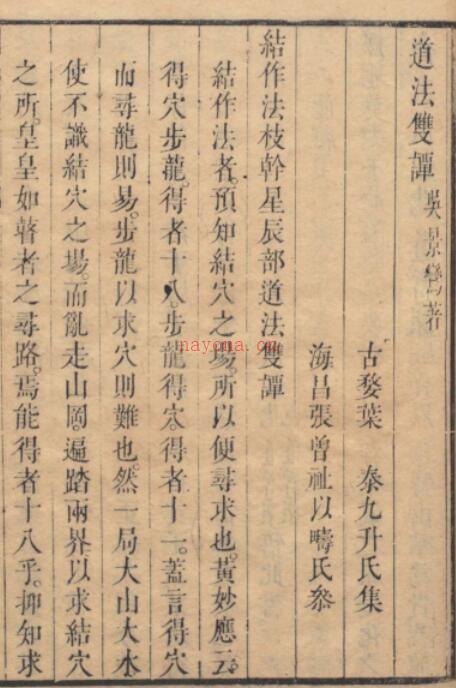 道法雙譚 吳景鸞著
古婺葉　泰九升氏集
海昌張曾祉以疇氏叅
結作法枝幹星辰部道法雙譚
結作法者。預知結穴之場。所以便尋求也。黃妙應云
得穴步龍。得者十八。步龍得穴。得者十一。蓋言得穴
而尋龍則易。步龍以求穴則難也。然一局大山大水
使不識結穴之場。而亂走山岡。遍踏兩界。以求結穴
之所。皇皇如瞽者之尋路。焉能得者十八乎。抑知求
nayona.cn